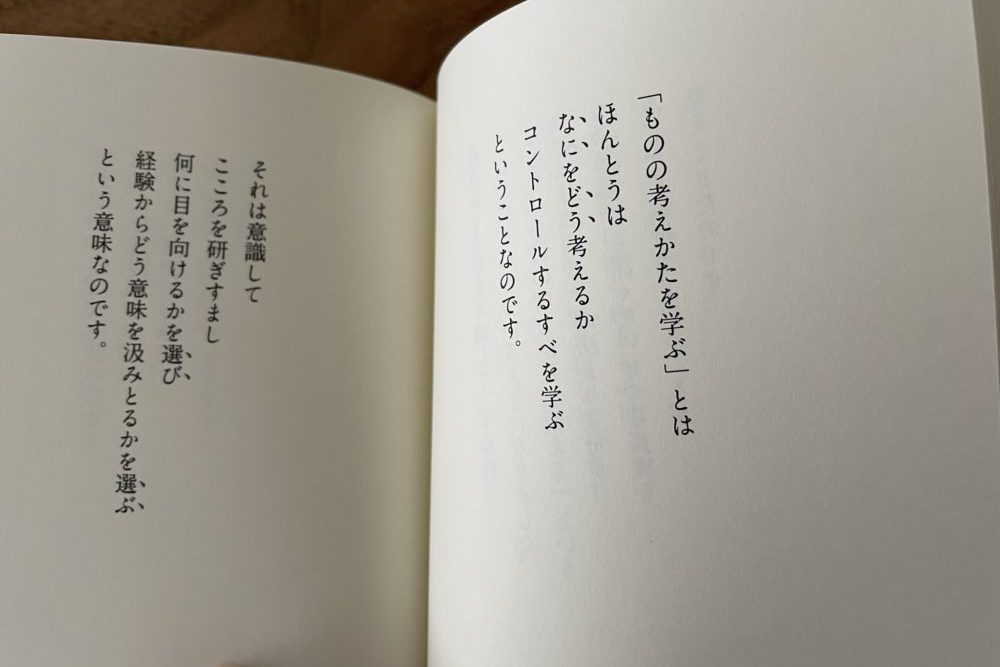 「ものの考えかたを学ぶ」とは
ほんとうは
なにをどう考えるか
コントロールするすべを学ぶ
ということなのです。
それは意識して
こころを研ぎすまし
何に目を向けるかを選び
経験からどう意味を汲みとるかを選ぶ
という意味なのです。